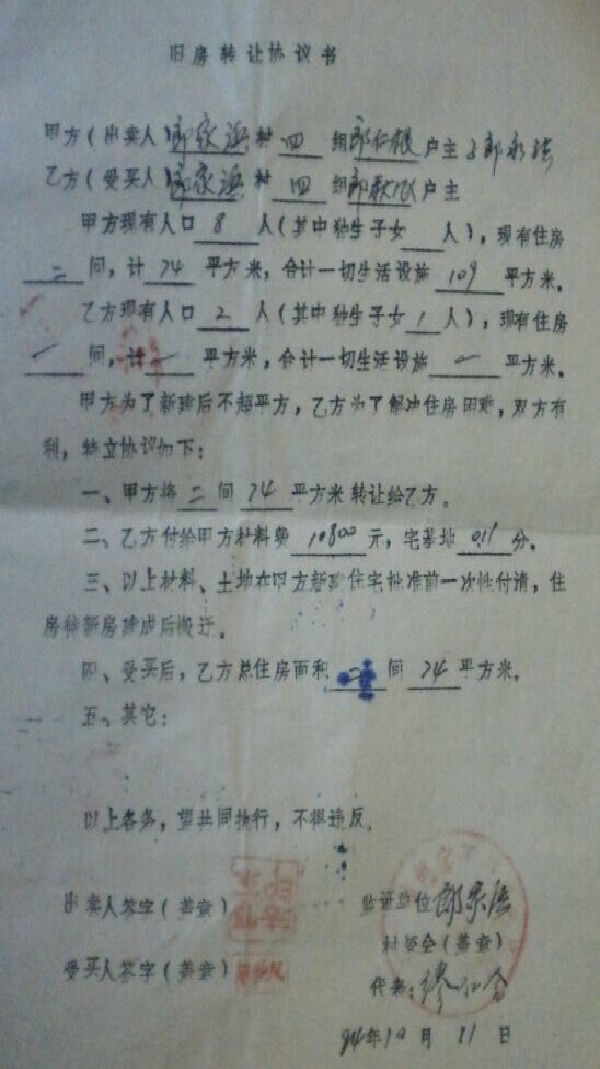 旧房转让协议书
甲方(出卖人)郎家浜村四组郎仁根户主
乙方(受买人)郎家浜村四组郎 户主
甲方现有人口8人(其中独生子女 人),现有住房
二间,计74平方米,合计一切生活设施109平方米。
乙方现有人口2人(其中独生子女1人),现有住房
/间,计/平方米,合计一切生活设施/平方米。
甲方为了新建后不超平方,乙方为了解决住房困难,双方有
利,特立协议如下:
一、甲方将二间74平方米转让给乙方。
二、乙方付给甲方材料费10800元,宅基地0.11分。
三、以上材料、土地在甲方新建住宅批准前一次性付清,住
房待新房建成后搬迁。
四、受买后,乙方总住房面积 间74平方米。
五、其它:
以上各条,望共同执行,不得违反。
出卖人签字(盖章)
监证单位郎家浜
村委会(盖章)
受买人签字(盖章)
代表:
94年10月11日